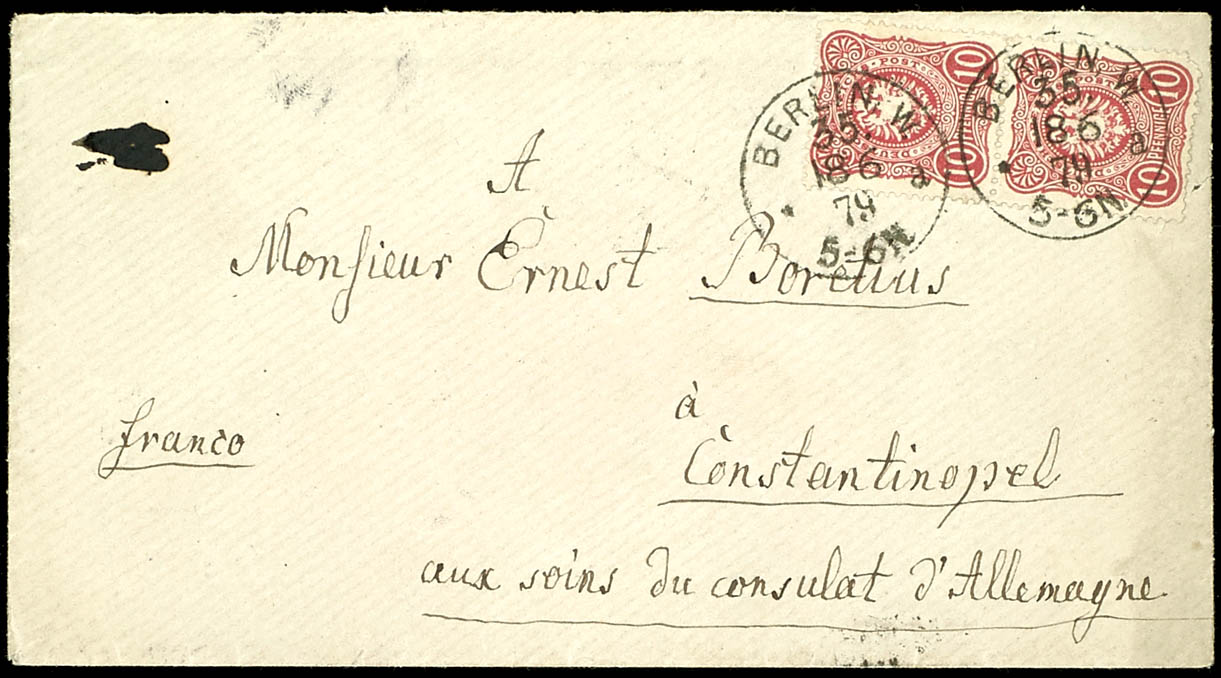 10 POST 10 PFENNIGE 10
10 POST 10 PFENNIGE 10
BERLIN, W.
35.
18 6
79
5-6N
* a
BERLIN, W
35.
18 6
79
5-6N
* a
A
Monsieur Ernest
à
franco
Constantinopel
aux soins du consulat d'Allemagne